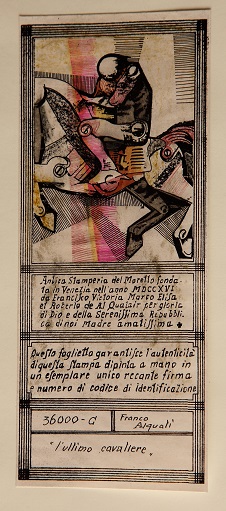 Antica Stamperia del Moretto fonda-
ta in Venezia nell'anno MDCCXVI
da Francisko Victoria Marco Elisa
et Roberto de Al Qualair per gloria
di Dio e della Serenissima Repubbli-
ca di noi Madre amatissima
Questo foglietto garantisce l'autenticità
di questa stampa dipinta a mano in
un esemplare unico recante firma
e numero di codice di identificazione
36000-G
Franco
Alquali
"l'ultimo cavaliere"